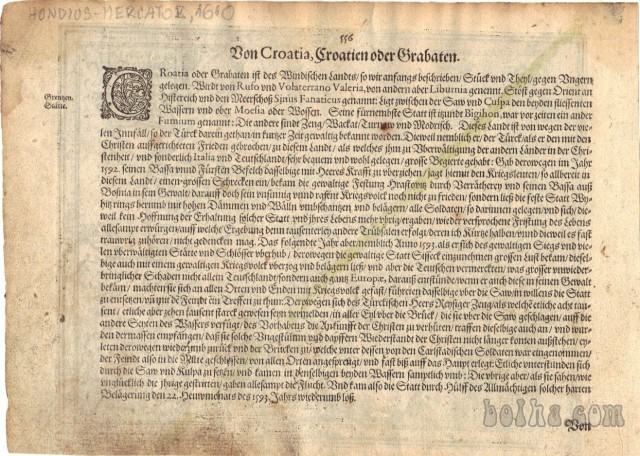 HONDIUS-MERCATOR, 1610
556
Von Croatia, Croatien oder Grabaten.
Grentzen.
Stätte.
CRoatia oder Grabaten ist des Windischen Landts/ so wir anfangs beschrieben/ Stück vnd Theyl/ gegen Vngern
gelegen. Wirdt von Rufo vnd Volaterrano Valeria, von andern aber Liburnia genannt. Stöst gegen Orient an
Histereich vnd den Meerschoß Sinus Fanaticus genannt: Ligt zwischen der Saw vnd Culpa den beyden fliessenten
Wassern vnd ober Moesia oder Bossen. Seine fürnembste Statt ist itzundt Bigihon, war vor zeiten ein ander
Fumium genannt: Die andere sindt Zeng/ Wackat/ Turnaw vnd Modrisch. Dieses Land ist von wegen der vie-
len Innfäll/ so der Türck darein gethan/ in kurtzer Zeit gewaltig bekannt worden. Dieweil nemblich er/ der Türck/ als er den mit den
Christen auffgerichteten Frieden gebrochen/ zu diesem Landt/ als welches ihm zu Vberwältigung der andern Länder in der Chri-
stenheit/ vnd sonderlich Italia vnd Teutschlandt/ sehr bequem vnd wohl gelegen/ grosse Begierte gehabt: Gab derowegen im Jahr
1592. seinen Bassa vnnd Fürsten Befelch dasselbige mit Heeres Krafft zu vberziehen/ jagt hiemit den Kriegsleuten/ so allbereit in
diesem Landt/ einen grossen Schrecken ein/ bekam die gewaltige Festung Hrastowitz durch Verrätherey vnd seinen Bassa auß
Bosnia in sein Gewalt/ darauff doch sein vnsinnig vnnd rasent Kriegsvolck noch nicht zu frieden/ sondern ließ die feste Statt Wy-
hitz rings herumb mit hohen Dämmen vnd Wälln vmbschantzen vnd belägern/ alle Soldaten/ so darinnen gelegen/ vnd sich/ die-
weil kein Hoffnung der Erhaltung solcher Statt vnd jhres Lebens mehr vbrig/ ergaben/ wieder versprochene Fristung des Lebens
allesampt erwürgen/ auff welche Ergebung denn tausenterley andere Trübsalen erfolgt/ deren ich Kürtze halben/ vnnd dieweil es fast
trauwrig zuhören/ nicht gedencken mag. Das folgende Jahr aber/ nemblich Anno 1593. als er sich des gewaltigen Siegs vnd vie-
len vberwältigten Stätte vnd Schlösser vberhub/ derowegen die gewaltige Statt Sisseck einzunehmen grossen Lust bekam/ diesel-
bige auch mit einem gewaltigen Kriegsvolck vberzog vnd belägern ließ/ vnd aber die Teutschen vermerckten/ was grosser vnwieder-
bringlicher Schaden nicht allein Teutschland/ sondern auch gantz Europæ, darauß entstünde/ wenn er auch diese in seinen Gewalt
bekäm/ machten sie sich an allen Orten vnd Enden mit Kriegsvolck gefast/ führeten dasselbige vber die Saw/ in willens die Statt
zu entsetzen/ vnd mit dē Feindt ein Treffen zu thun: Derowegen sich des Türckischen Heers Reysiger Zeug/ als welche etliche acht tau-
sent/ etliche aber zehen tausent starck gewesen seyn vermelden/ in aller Eyl vber die Brück/ die sie vber die Saw geschlagen/ auff die
andere Seyten des Wassers verfügt/ des Vorhabens die Ankunfft der Christen zu verhüten/ traffen dieselbige auch an/ vnd wur-
den dermassen empfangen/ daß sie solche Vngestümm vnd dapffern Wiederstandt der Christen nicht länger konten außstehen/ ey-
leten derowegen wiederumb zurück vnd der Brücken zu/ welche unter dessen von den Carlstadischen Soldaten war eingenommen/
der Feindt also in die Mitte geschlossen/ von allen Orten angesprengt/ vnd fast biß auff das Haupt erlegt: Etliche vnterstunden sich
durch die Saw vnd Kulpa zu setzen/ vnd kamen in denselbigen beyden Wassern sämptlich vmb: Die vbrige aber/ als sie sahen/ wie
vnglücklich die jhrige gestritten/ gaben allesampt die Flucht. Vnd kam also die Statt durch Hülff des Allmächtigen solcher harten
Belägerung den 22. Hewmonats des 1593. Jahrs wiederumb loß.
Von
bolha.com